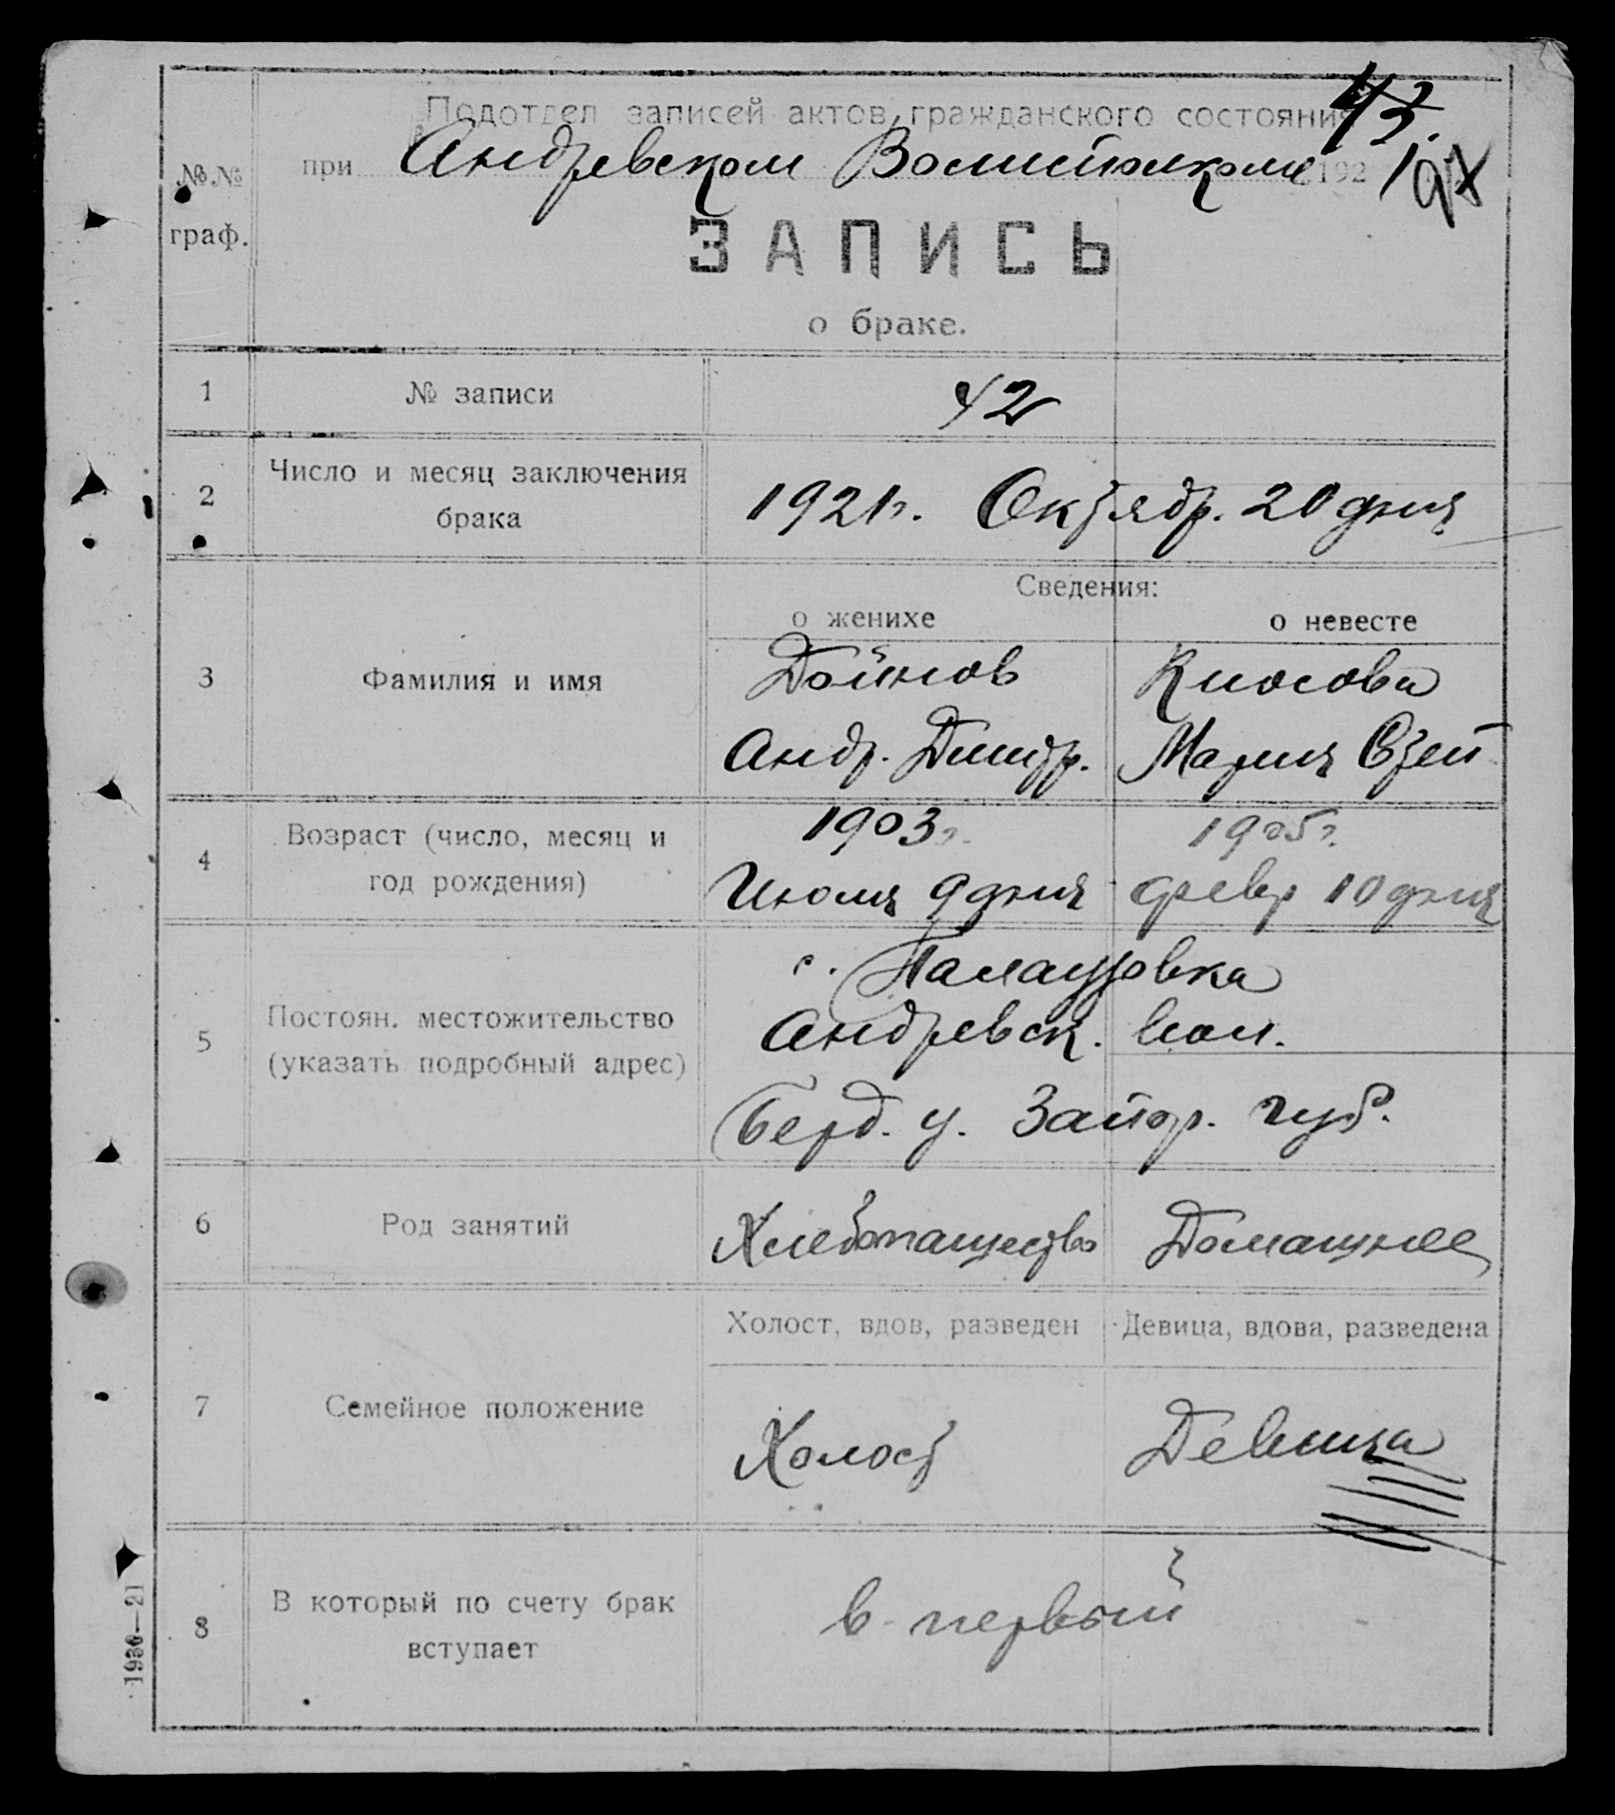 43.
Подотдел записей актов гражданского состояния
при Андревском Волисполкоме 192 1
97
№№
граф.
ЗАПИСЬ
о браке.
1 № записи 42
2 Число и месяц заключения брака 1921г. Октябр. 20 дня
Сведения:
о женихе о невесте
3 Фамилия и имя Дойнов Киосова
Андр. Дмитр. Мария
4 Возраст (число, месяц и год рождения) 1903г. 1905г.
Июля 9 дня февр 10 дня
5 Постоян. местожительство (указать подробный адрес) с.
Андревск. вол.
Берд. у. Запор. губ.
6 Род занятий Хлебопашество Домашнее
Холост, вдов, разведен Девица, вдова, разведена
7 Семейное положение Холост Девица
8 В который по счету брак вступает в первый